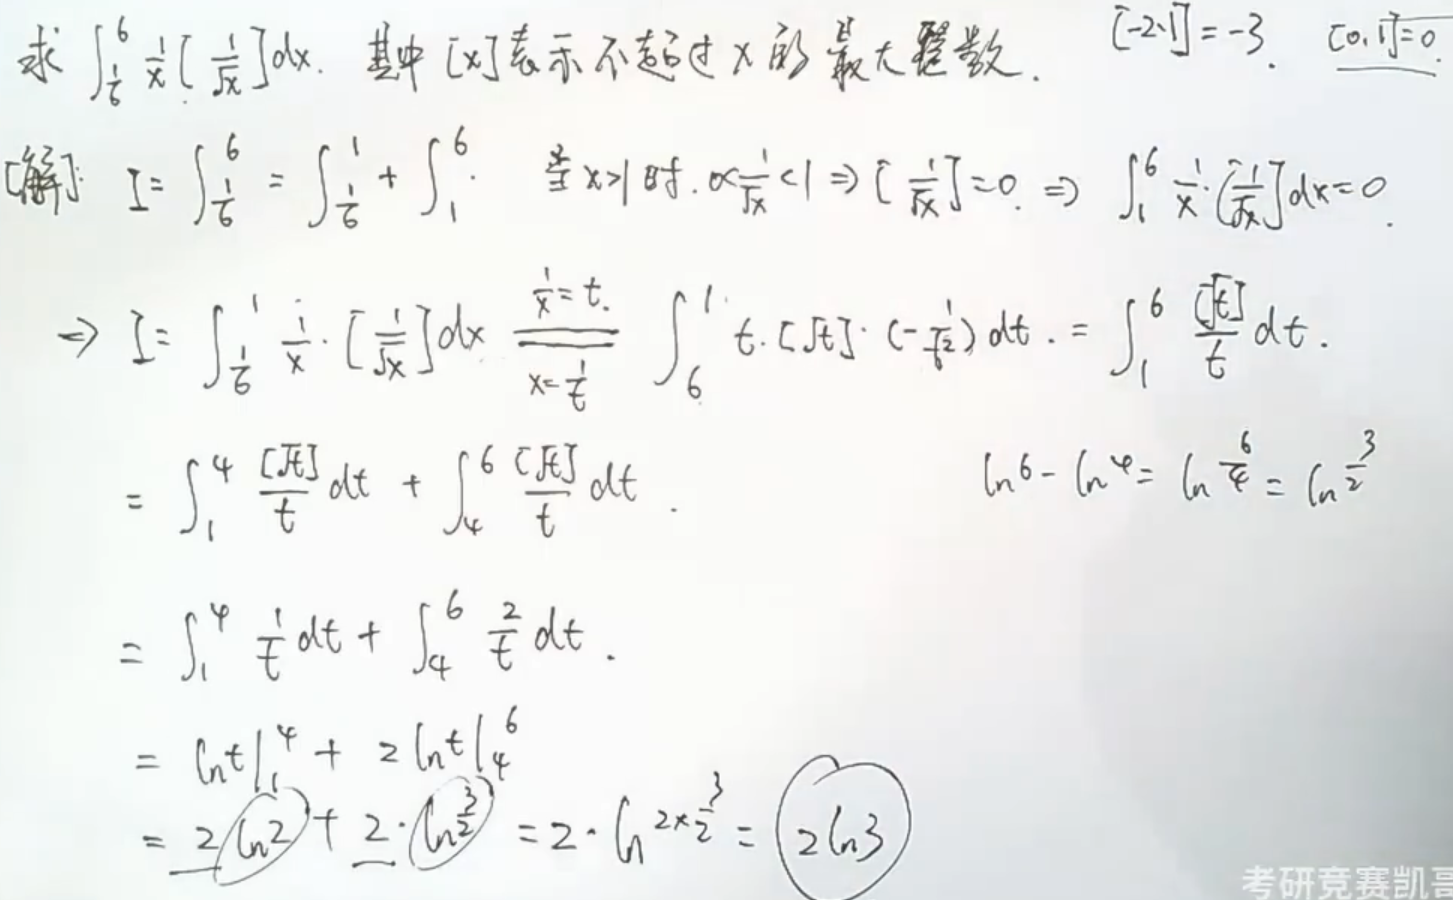 求 ∫_{1/6}^{6} 1/x [1/√x] dx. 其中 [x] 表示不超过 x 的最大整数. [-2.1] = -3. [0.1] = 0.
[解]: I = ∫_{1/6}^{6} = ∫_{1/6}^{1} + ∫_{1}^{6}. 当 x>1 时. 0<1/√x<1 ⇒ [1/√x] = 0. ⇒ ∫_{1}^{6} 1/x · [1/√x] dx = 0.
⇒ I = ∫_{1/6}^{1} 1/x · [1/√x] dx ==(1/x = t. x = 1/t)== ∫_{6}^{1} t · [√t] · (-1/t²) dt. = ∫_{1}^{6} [√t]/t dt.
= ∫_{1}^{4} [√t]/t dt + ∫_{4}^{6} [√t]/t dt. ln6 - ln4 = ln 6/4 = ln 3/2
= ∫_{1}^{4} 1/t dt + ∫_{4}^{6} 2/t dt.
= ln t|_{1}^{4} + 2 ln t|_{4}^{6}
= 2 ln2 + 2 · ln 3/2 = 2 · ln 2×3/2 = 2 ln3
考研竞赛凯哥